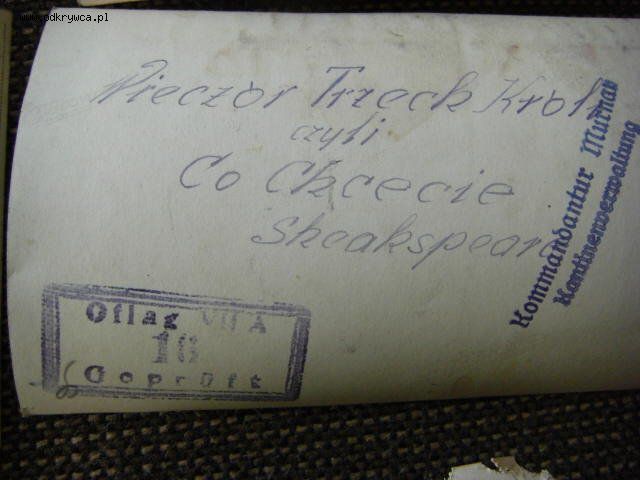 www.odkrywca.pl
Wieczór Trzech Króli
czyli
Co Chcecie
Sheakspeara
Kommandantur Murnau
Kantinenverwaltung
Oflag VII A
16
Geprüft